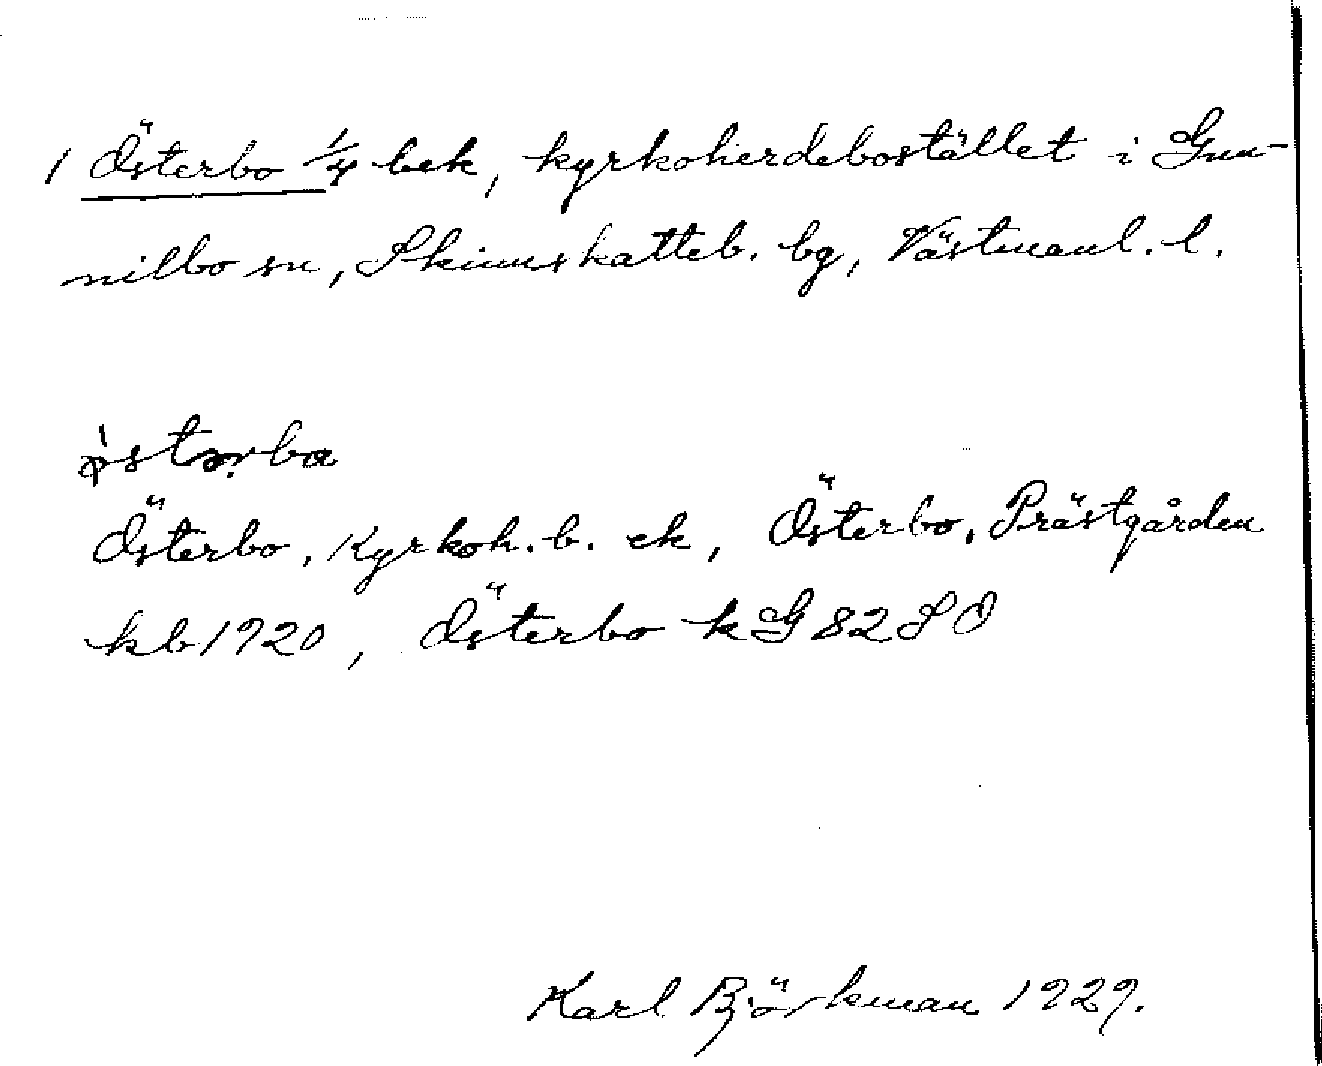 1 Österbo 1/4 bek, kyrkoherdebostället i Gun-
nilbo sn, Skinnskatteb. bg, Västmanl. l.
Österbo, Kyrkoh. b. ek, Österbo, Prästgården
kb 1920, Österbo k G 82 S O
Karl Björkman 1929.